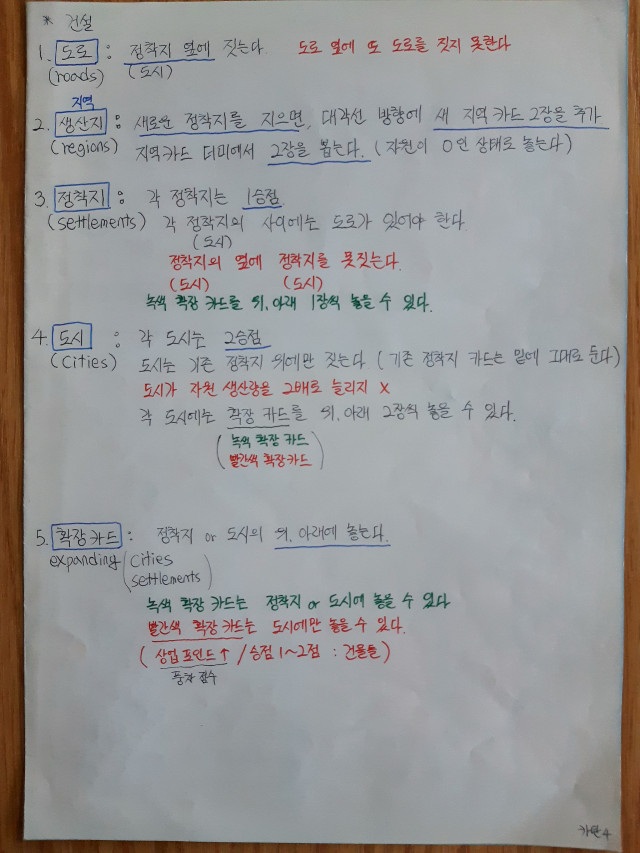 * 건설
1. 도로 : 정착지 옆에 짓는다. 도로 옆에 또 도로를 짓지 못한다
(roads) (도시)
지역
2. 생산지 : 새로운 정착지를 지으면, 대각선 방향에 새 지역 카드 2장을 추가
(regions) 지역카드 더미에서 2장을 뽑는다. (자원이 0인 상태로 놓는다)
3. 정착지 : 각 정착지는 1승점
(settlements) 각 정착지의 사이에는 도로가 있어야 한다.
(도시)
정착지의 옆에 정착지를 못짓는다.
(도시) (도시)
녹색 확장 카드를 위, 아래 1장씩 놓을 수 있다.
4. 도시 : 각 도시는 2승점
(cities) 도시는 기존 정착지 위에만 짓는다 (기존 정착지 카드는 밑에 그대로 둔다)
도시가 자원 생산량을 2배로 늘리지 X
각 도시에는 확장 카드를 위, 아래 2장씩 놓을 수 있다.
(녹색 확장 카드
빨간색 확장카드)
5. 확장카드 : 정착지 or 도시의 위, 아래에 놓는다.
expanding (cities
settlements)
녹색 확장 카드는 정착지 or 도시에 놓을 수 있다
빨간색 확장 카드는 도시에만 놓을 수 있다.
(상업 포인트↑ / 승점 1~2점 : 건물들)
풍차 점수
카탄 4